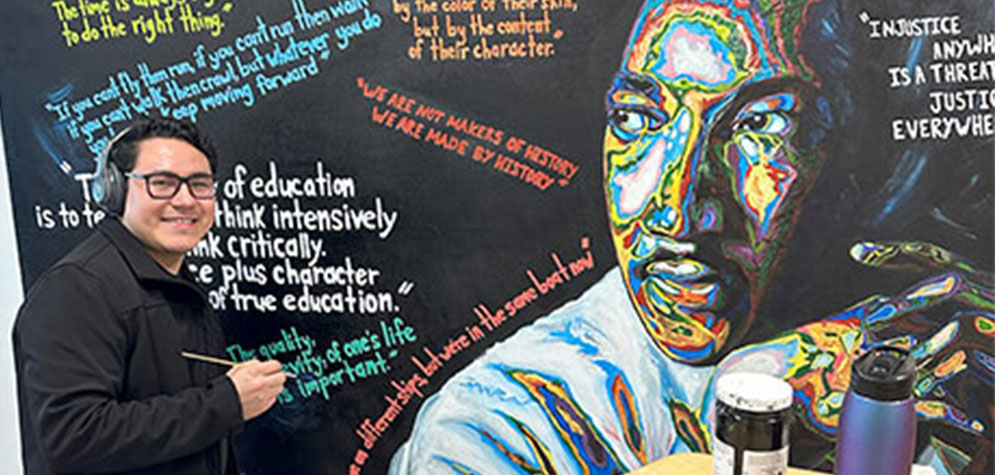 The time is
to do the right thing."
"If you can't fly then run, if you can't run then walk,
if you can't walk, then crawl, but whatever you do
keep moving forward"
by the color of their skin,
but by the content
of their character."
"WE ARE NOT MAKERS OF HISTORY
WE ARE MADE BY HISTORY"
"INJUSTICE
ANYWH
IS A THREAT
JUSTIC
EVERYWHE
"T of education
is to te think intensively
ink critically.
ce plus character
of true education."
The quality,
vity, of one's life
is important."
different ships, but we're in the same boat now"